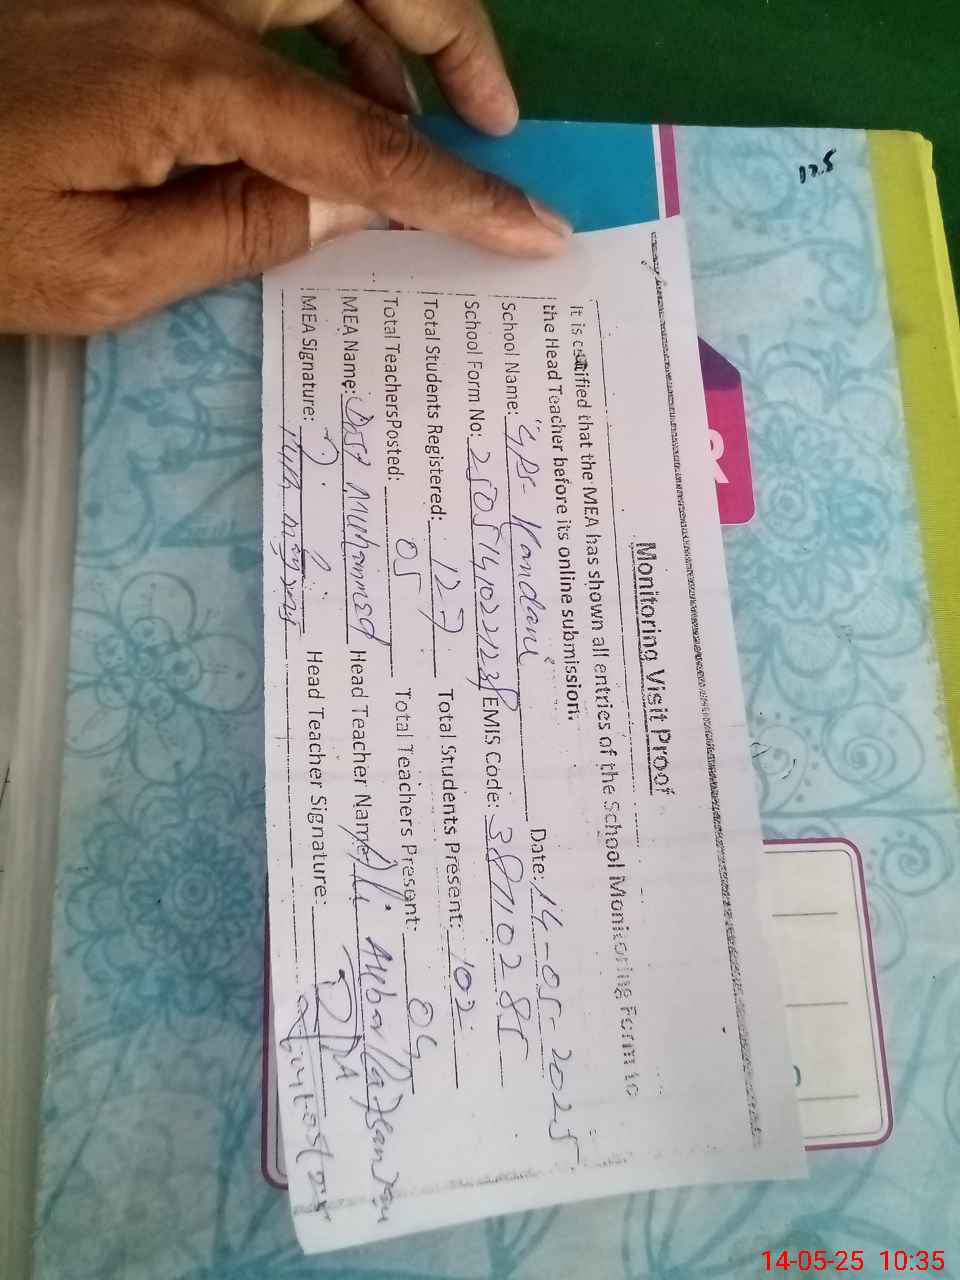 Monitoring Visit Proof
It is certified that the MEA has shown all entries of the School Monitoring Form to
the Head Teacher before its online submission.
School Name: GPS- Date: 14-05-2025
School Form No: EMIS Code:
Total Students Registered: 127 Total Students Present: 102
Total TeachersPosted: 05 Total Teachers Present: 04
MEA Name: Dost Muhammed Head Teacher Name: Ali Akbar
MEA Signature: Head Teacher Signature:
14-05-25 10:35